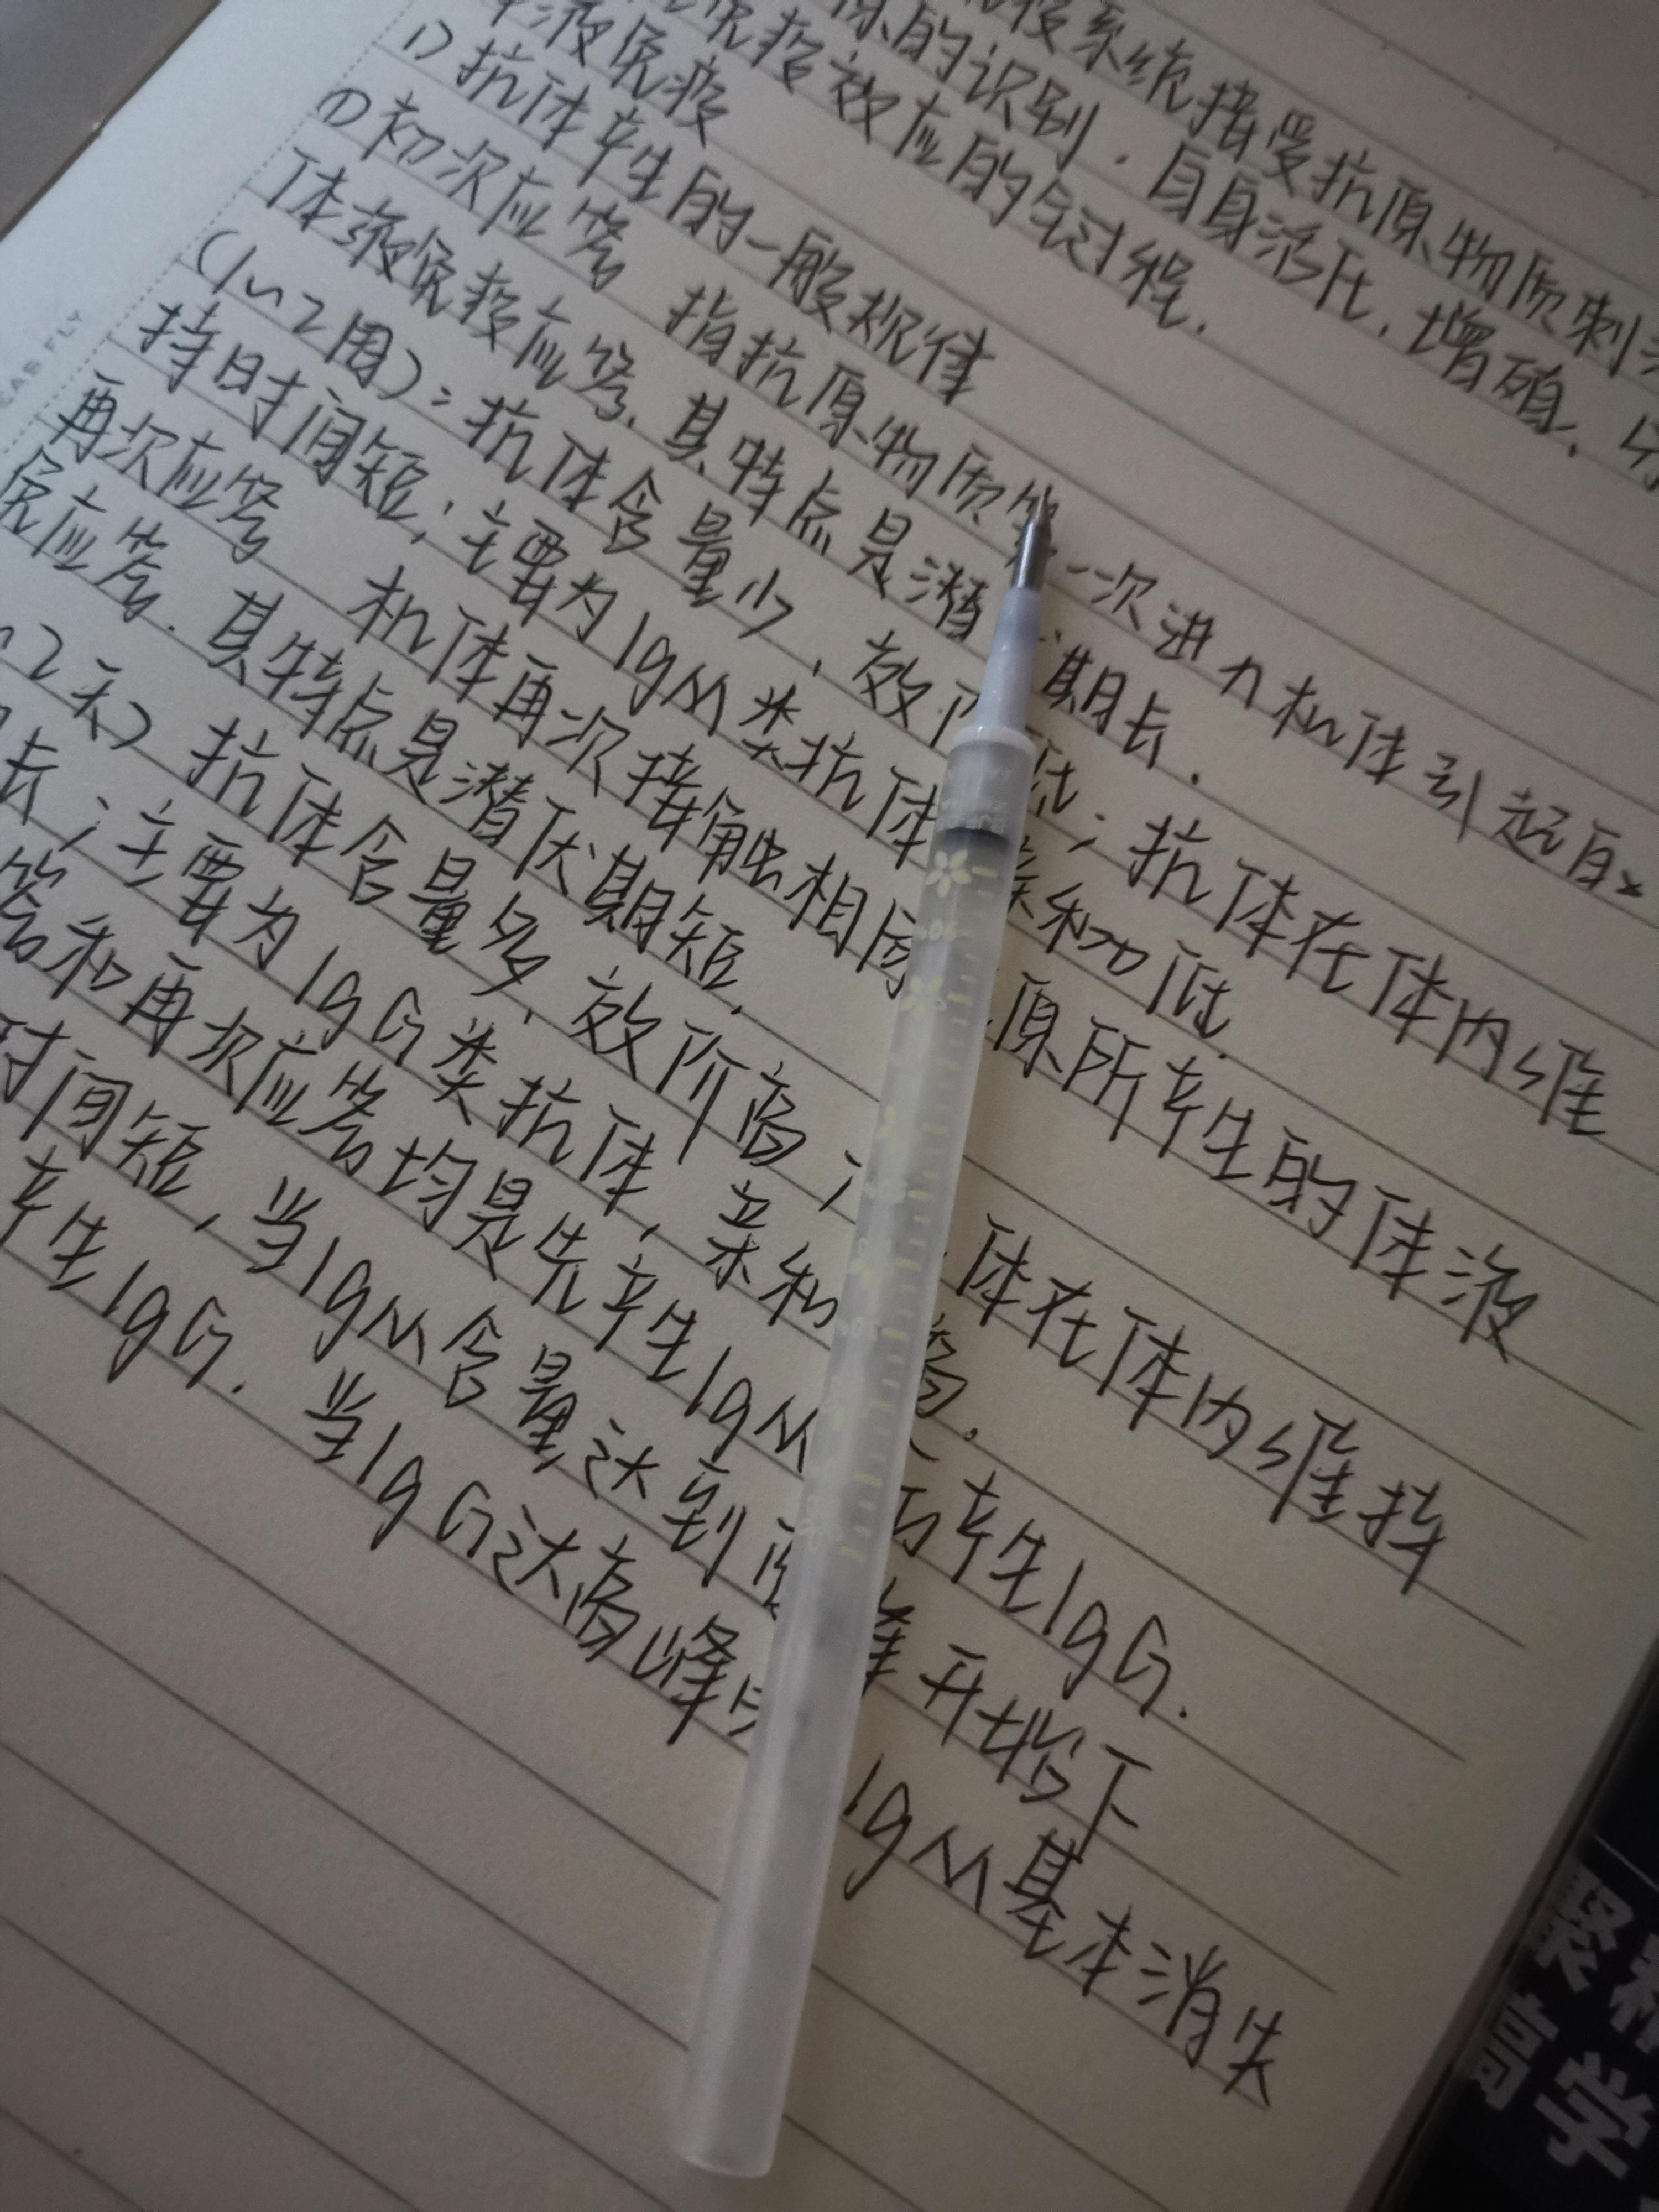 系统接受抗原物质刺
的识别，自身活化，增殖，
免疫效应的过程．
液免疫
1）抗体产生的一般规律
①初次应答 指抗原物质第一次进入机体引起
体液免疫应答．其特点是潜 期长．
（1~2周）：抗体含量少，效 低；抗体在体内维
持时间短；主要为IgM类抗体 和力低．
再次应答 机体再次接触相同 原所产生的体液
免应答．其特点是潜伏期短．
2天）抗体含量多，效价高； 体在体内维持
长；主要为IgG类抗体，亲和 高．
答和再次应答均是先产生IgM 后产生IgG．
时间短，当IgM含量达到 开始下
产生IgG．当IgG达高峰 IgM基本消失
EAS FLY
聚
高学